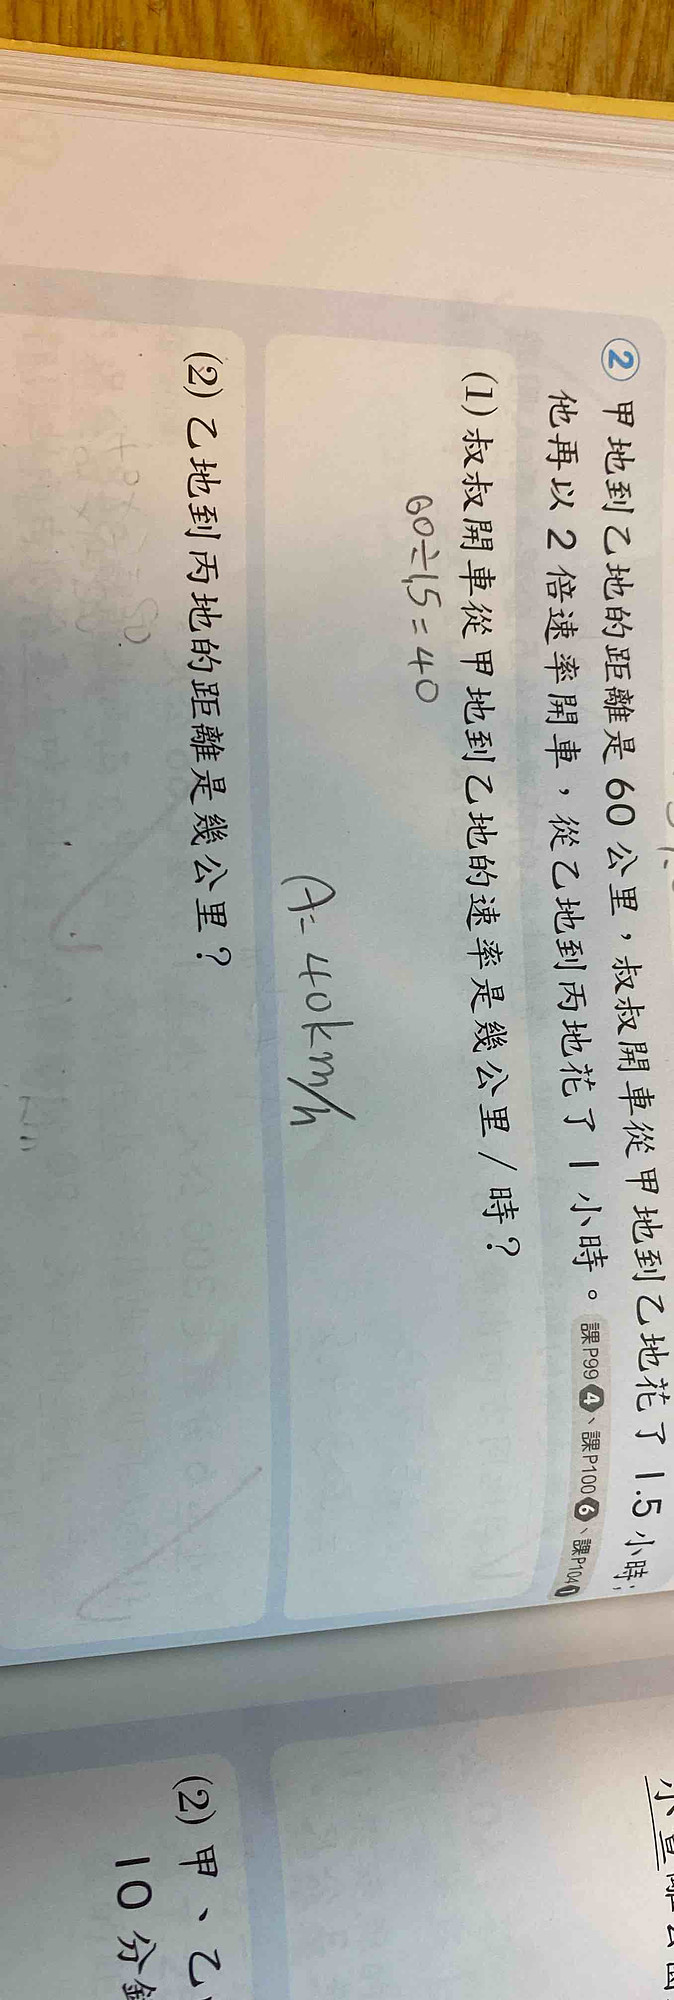 ② 甲地到乙地的距離是 60 公里，叔叔開車從甲地到乙地花了 1.5 小時；
他再以 2 倍速率開車，從乙地到丙地花了 1 小時。 課P99 ④、課P100 ⑥、課P104 ①
(1) 叔叔開車從甲地到乙地的速率是幾公里/時？
60÷1.5=40
A=40km/h
(2) 乙地到丙地的距離是幾公里？
(2) 甲、乙
10 分鐘